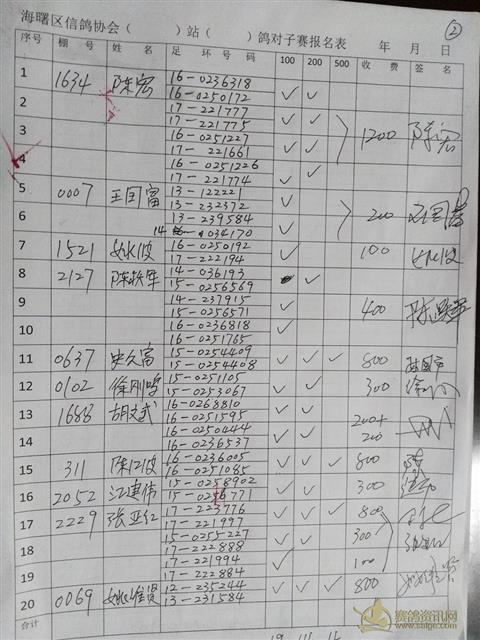 海曙区信鸽协会（ ）站（ ）鸽对子赛报名表 年 月 日 ②
序号 棚号 姓名 足环号码 100 200 500 收费 签名
1 1634 陈宏 16-0236318
16-0250172 ✓ ✓
2 17-221777
17-221775 ✓ ✓
3 16-0251227 1200 陈宏
17-221661 ✓ ✓
4 16-0251226
17-221774 ✓ ✓
5 0007 王国富 13-12221
13-232372 ✓
6 13-239584 200 王国富
14 034170 ✓
7 1521 16-0250192
17-222194 ✓ 100
8 2127 陈跃军 14-036193
15-0256569 ✓
9 14-237915
15-0256571 ✓ 400
10 16-0236818
16-0251765 ✓
11 0637 史久富 15-0254409
15-0254408 ✓ ✓ ✓ 800
12 0102 徐刚鸣 15-0251105
15-0253067 ✓ ✓ 300
13 1688 胡文武 16-0268810
16-0251595 ✓ ✓ 200+
14 16-0250444 200
16-0236537 ✓ ✓
15 311 陈仁波 16-0236005
16-0251085 ✓ ✓ ✓ 800
16 2052 江建伟 15-0258902
15-0256771 ✓ ✓ 300
17 2229 张亚红 17-223776
17-221997 ✓ ✓ ✓ 800
18 15-0255227 300
17-222888 ✓ ✓
19 17-221994 100
17-222884 ✓
20 0069 12-235244
13-231584 ✓ ✓ ✓ 800
合计
赛鸽资讯网
www.saige.com